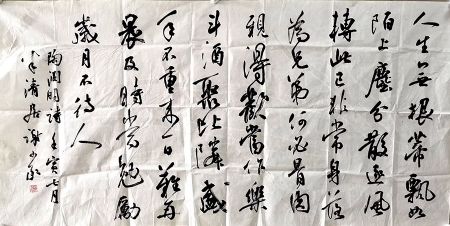 人生無根蒂飄如
陌上塵分散逐風
轉此已非常身落
為兄弟何必骨肉
親得歡當作樂
斗酒聚比鄰盛
年不重來一日難再
晨及時當勉勵
歲月不待人
陶淵明詩壬寅七月
居謝